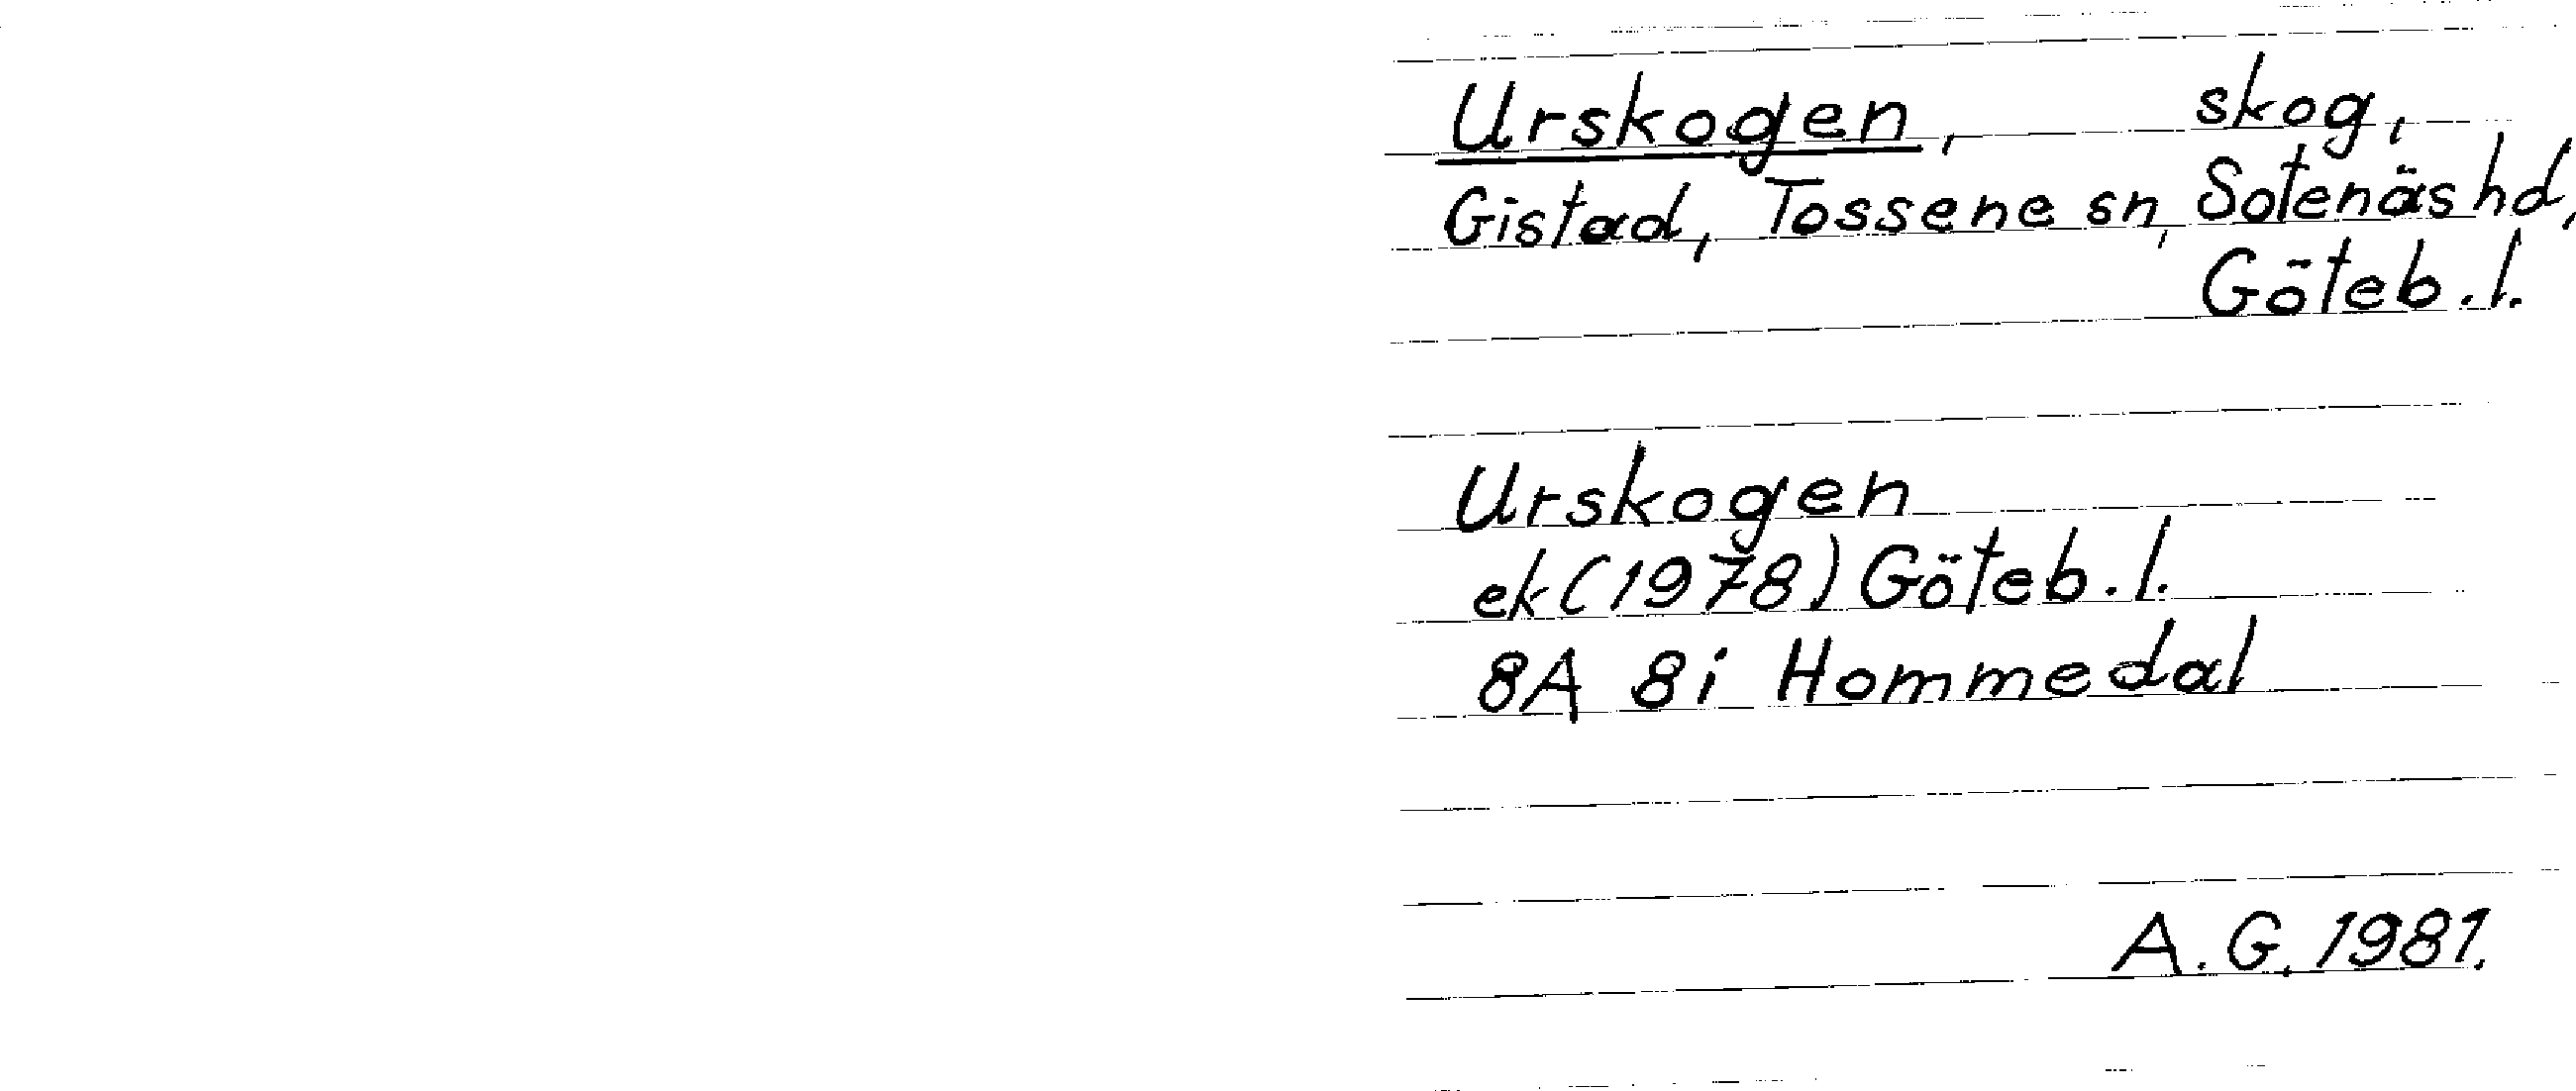 Urskogen, skog,
Gistad, Tossene sn, Sotenäs hd,
Göteb.l.
Urskogen
ek (1978) Göteb.l.
8A 8i Hommedal
A.G. 1981.